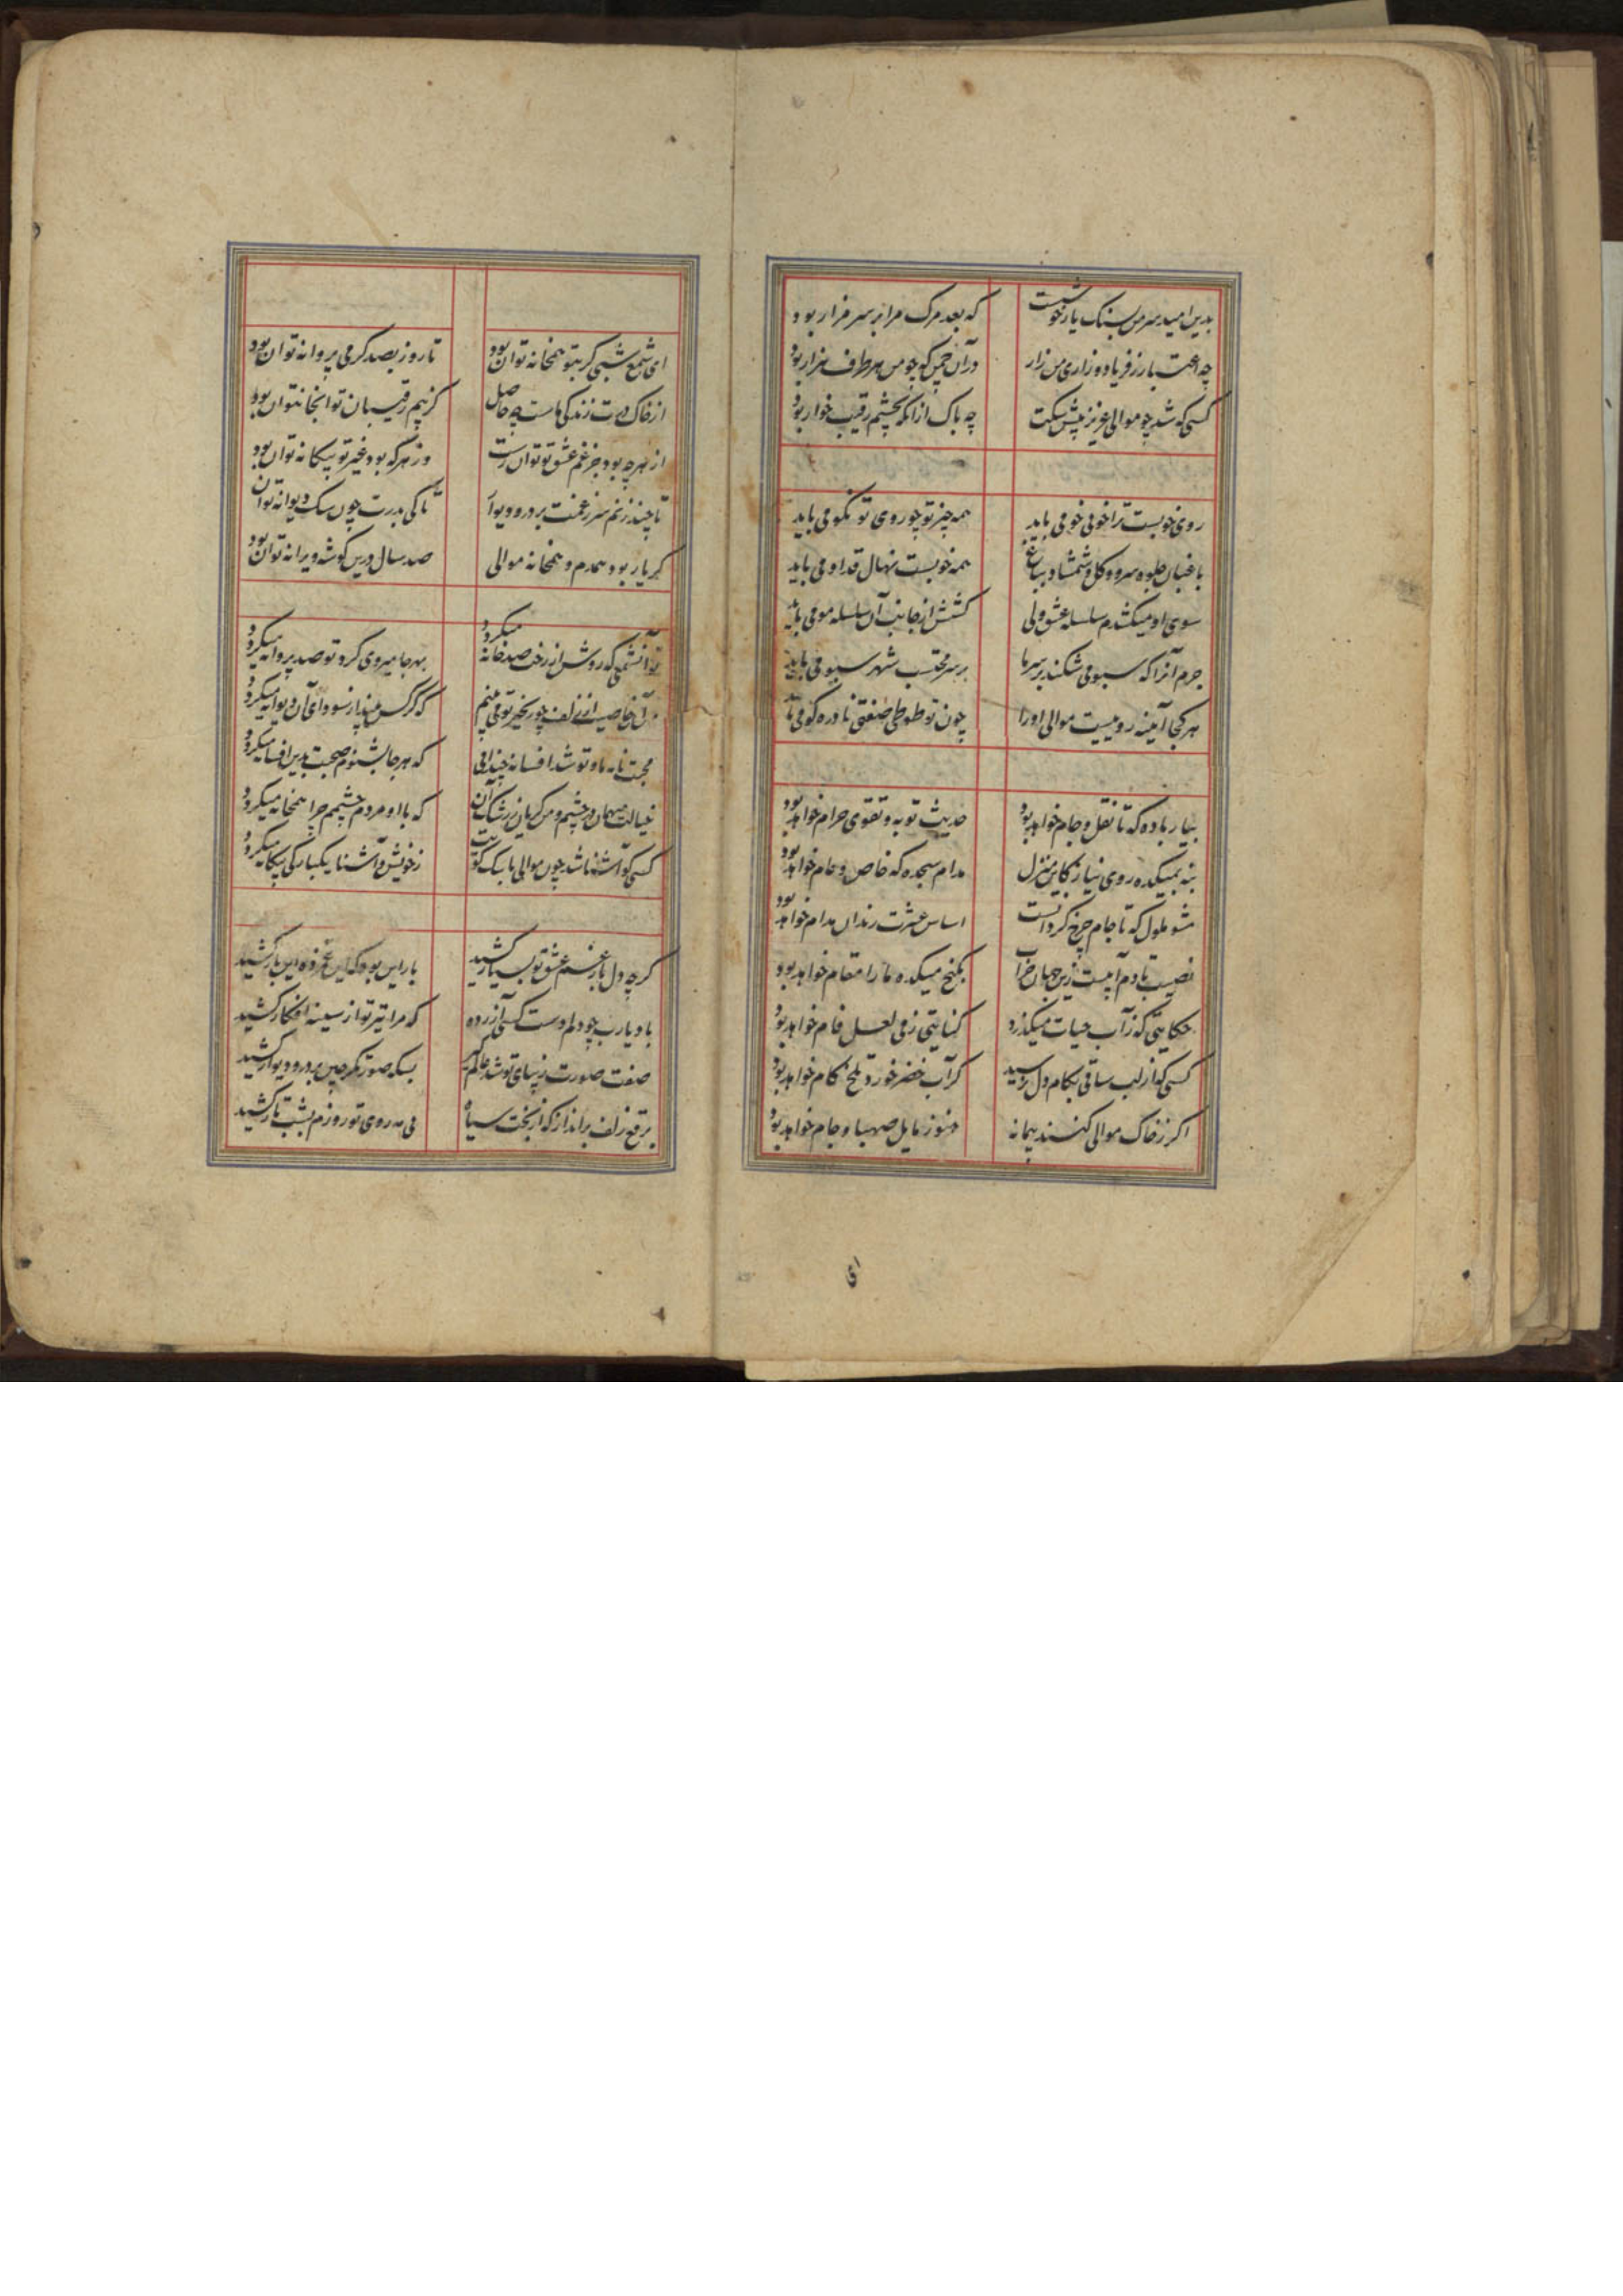 بدین امید سر من بسنک یار خوشست که بعد مرک مرا بر سر مزار بود
چه اعتبار ز فریاد و زاری من زار در آن چمن که چو من هر طرف هزار بود
کسی که شد چو موالی عزیز پیش سکت چه باک از آنکه بچشم رقیب خوار بود
روی خوبست ترا خوی نکو می باید همه چیز تو چو روی تو نکو می باید
باغبان جلوه سرو و کل و شمشاد بباغ همه خوبست نهال قد او می باید
سوی او میکشدم سلسله عشق ولی کشش از جانب آن سلسله مو می باید
جرم آنرا که سبو می شکند بر سر ما بر سر محتسب شهر سبو می باید
هر کجا آینه روییست موالی او را چون تو طوطی صفتی نادره کو می باید
بیار باده که تا نقل و جام خواهد بود حدیث توبه و تقوی حرام خواهد بود
بنه بمیکده روی نیاز کاین منزل مدام سجده که خاص و عام خواهد بود
مشو ملول که تا جام چرخ کردانست اساس عشرت رندان مدام خواهد بود
نصیب تا دم آبیست زین جهان خراب بکنج میکده ما را مقام خواهد بود
حکایتی که ز آب حیات میکذرد کنایتی ز می لعل فام خواهد بود
کسی کو از لب ساقی بکام دل نرسید کر آب خضر خورد تلخ کام خواهد بود
اکر ز خاک موالی کنند پیمانه هنوز مایل صهبا و جام خواهد بود
ای
ای شمع شبی کر بتو همخانه توان بود تا روز بصد کرمی پروانه توان بود
از خاک درت زندکی ماست چه حاصل کز بیم رقیبان تو آنجا نتوان بود
از هر چه بود جز غم عشق تو توان رست وز هر که بود غیر تو بیکانه توان بود
تا چند زنم سر ز غمت بر در و دیوار تا کی بدرت چون سک دیوانه توان
کر یار بود همدم و همخانه موالی صد سال درین کوشه ویرانه توان بود
تو آن شمعی که روشن از رخت صد خانه میکردد بهر جا میروی کرد تو صد پروانه میکردد
من آن خاصیت از زلف چو زنجیر تو می بینم که کر کس بیند از سودای آن دیوانه میکردد
محبت نامه ما و تو شد افسانه چندانی که هر جا بشنوم صحبت بدین افسانه میکردد
خیالت میهمان در چشم و من کریان ز رشک آن که با او مردم چشمم چرا همخانه میکردد
کسی کو آشنا شد چون موالی با سک کویت ز خویش و آشنا یکبارکی بیکانه میکردد
کر چه دل بار غم عشق تو بسیار کشید بار این بود که این غمزده این بار کشید
باد یارب چو دلم دست کسی آزرده که مرا تیر تو از سینه افکار کشید
صفت صورت زیبای تو شد عالم گیر بسکه صورتکر چین بر در و دیوار کشید
برقع زلف برانداز که از بخت سیاه بی مه روی تو روزم بشب تار کشید